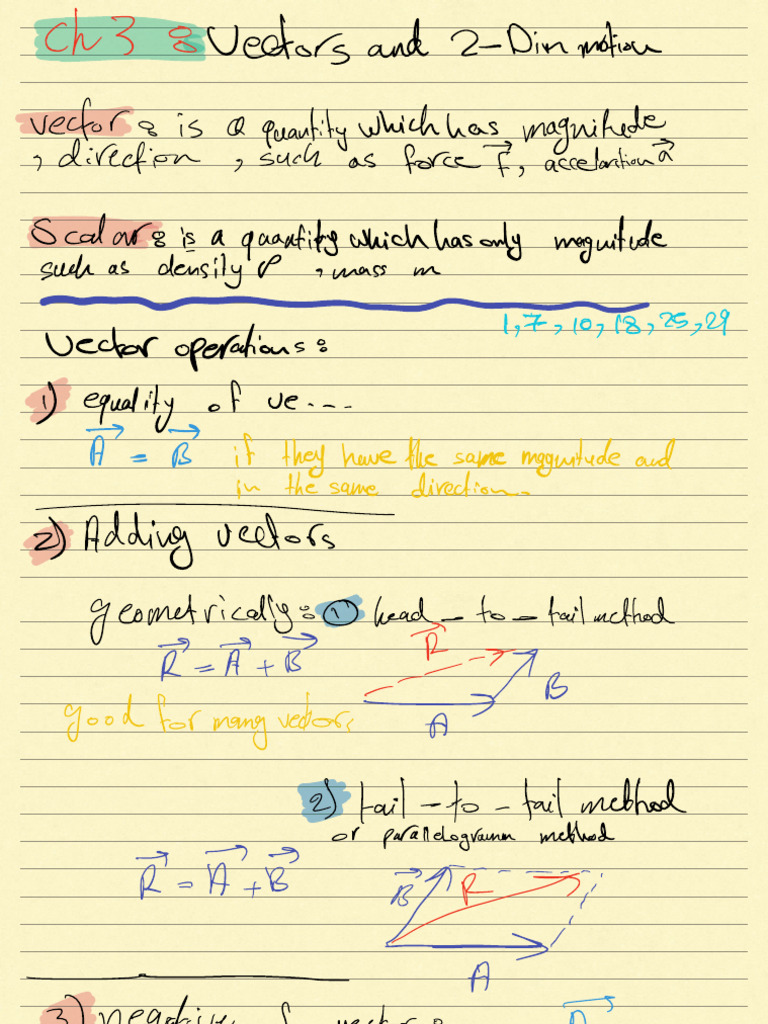 Ch 3 : Vectors and 2-Dim motion
vector : is a quantity which has magnitude
, direction , such as force F, accelaration a
Scalar : is a quantity which has only magnitude
such as density ρ , mass m
1, 7, 10, 18, 25, 29
Vector operations :
1) equality of ve....
A = B if they have the same magnitude and
in the same direction.
2) Adding vectors
geometrically : 1) head - to - tail method
R = A + B
R
B
A
good for many vectors
2) tail - to - tail method
or parallelogramm method
R = A + B
B
R
A
3) negative of vector :